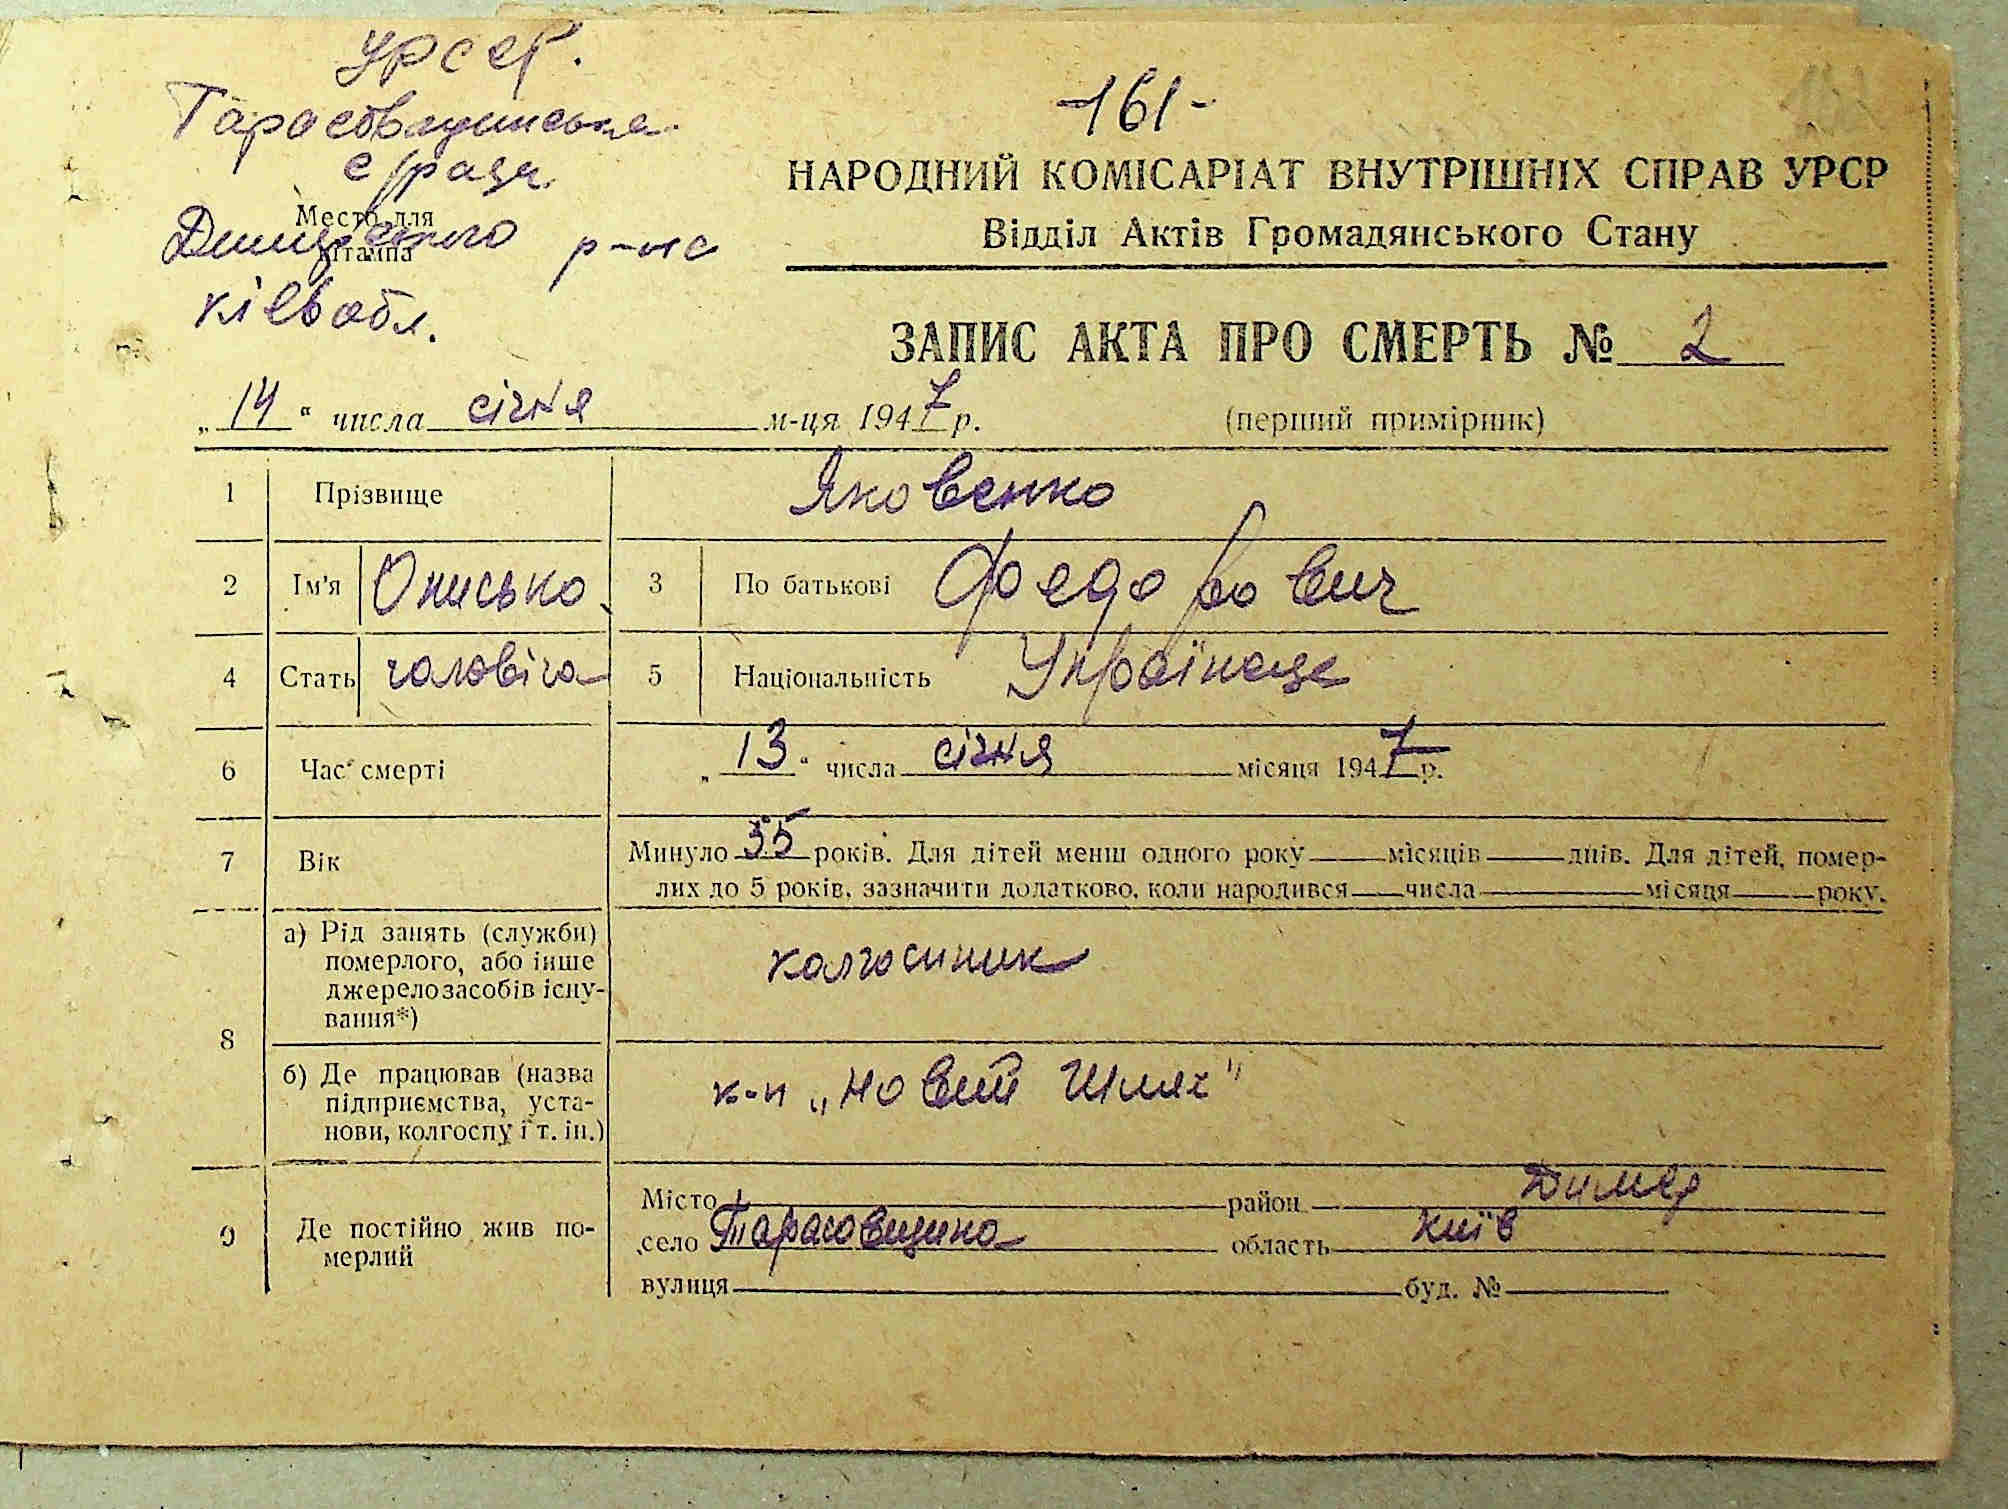 УРСР.
-161-
Тарасовщинська
с/рада
НАРОДНИЙ КОМІСАРІАТ ВНУТРІШНІХ СПРАВ УРСР
Место для
штампа
Димерського р-на
Відділ Актів Громадянського Стану
київ обл.
ЗАПИС АКТА ПРО СМЕРТЬ № 2
„14“ числа січня м-ця 1947 р.
(перший примірник)
1 Прізвище Яковенко
2 Ім'я Онисько 3 По батькові Федорович
4 Стать чоловіча 5 Національність Українець
6 Час смерті „13“ числа січня місяця 1947 р.
7 Вік Минуло 55 років. Для дітей менш одного року місяців днів. Для дітей, помер-
лих до 5 років, зазначити додатково, коли народився числа місяця року.
8 а) Рід занять (служби)
померлого, або інше
джерело засобів існу-
вання*)
колгоспник
б) Де працював (назва
підприємства, уста-
нови, колгоспу і т. ін.)
к-п „Новий Шлях"
9 Де постійно жив по-
мерлий
Місто район Димер
село Тарасовщина область Київ
вулиця буд. №